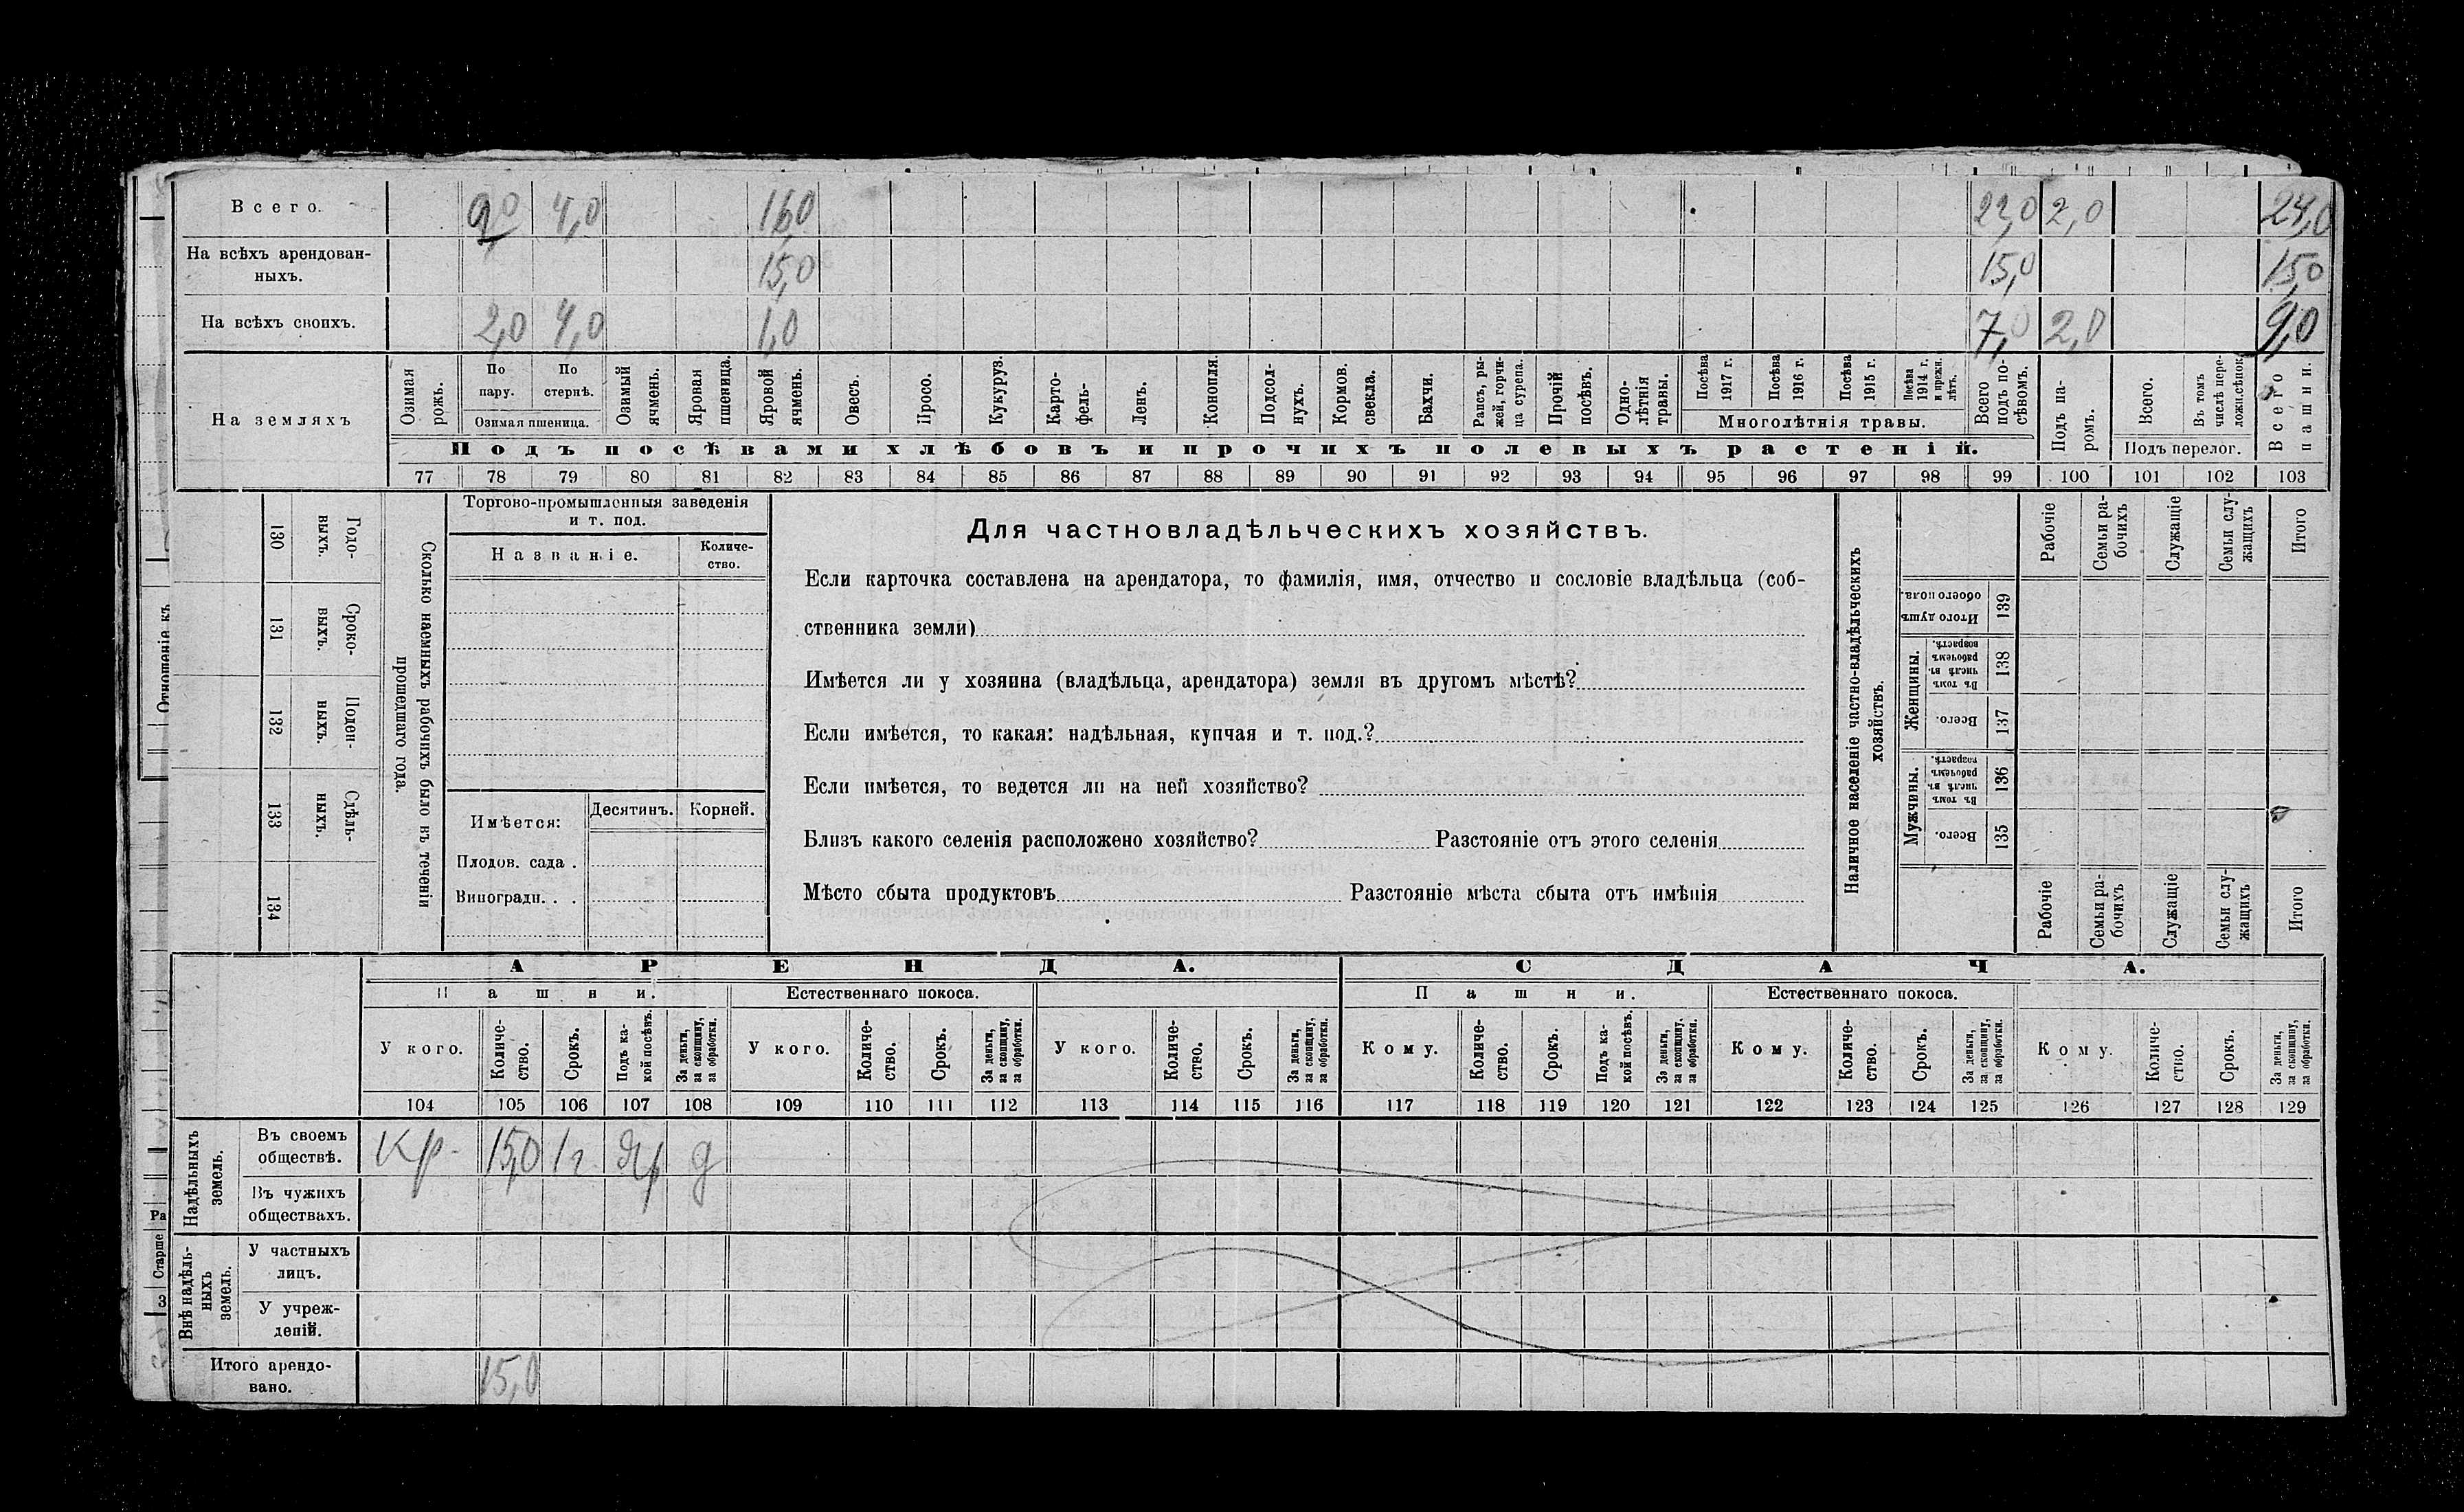 Всего. 2,0 4,0 16,0 22,0 2,0 24,0
На всѣхъ арендован-
ныхъ. 15,0 15,0 15,0
На всѣхъ своихъ. 2,0 4,0 1,0 7,0 2,0 9,0
На земляхъ
Озимая рожь.
По пару.
По стернѣ.
Озимая пшеница.
Озимый ячмень.
Яровая пшеница.
Яровой ячмень.
Овесъ.
Просо.
Кукуруз.
Карто-
фель-
Ленъ.
Конопля.
Подсол-
нухъ.
Кормов. свекла.
Бахчи.
Рапсъ, ры-
жей, горчи-
ца сурепа.
Прочій посѣвъ.
Одно-
лѣтнія травы.
Посѣва 1917 г.
Посѣва 1916 г.
Посѣва 1915 г.
Посѣва 1914 г. и прежн. лѣтъ.
Многолѣтнія травы.
Всего подъ по-
сѣвомъ.
Подъ па-
ромъ.
Всего.
Въ томъ числѣ пере-
ложн.сѣнок.
Подъ перелог.
Всего пашни.
Подъ посѣвами хлѣбовъ и прочихъ полевыхъ растеній.
77 78 79 80 81 82 83 84 85 86 87 88 89 90 91 92 93 94 95 96 97 98 99 100 101 102 103
Отношеніе къ
Ра
Старше
З
130 Годо-
выхъ.
131 Сроко-
выхъ.
132 Поден-
ныхъ.
133 Сдѣль-
ныхъ.
134
Сколько наемныхъ рабочихъ было въ теченіи
прошедшаго года.
Торгово-промышленныя заведенія
и т. под.
Названіе.
Количе-
ство.
Имѣется:
Десятинъ. Корней.
Плодов. сада .
Виноградн. . .
Для частновладѣльческихъ хозяйствъ.
Если карточка составлена на арендатора, то фамилія, имя, отчество и сословіе владѣльца (соб-
ственника земли)
Имѣется ли у хозяина (владѣльца, арендатора) земля въ другомъ мѣстѣ?
Если имѣется, то какая: надѣльная, купчая и т. под.?
Если имѣется, то ведется ли на ней хозяйство?
Близъ какого селенія расположено хозяйство? Разстояніе отъ этого селенія
Мѣсто сбыта продуктовъ Разстояніе мѣста сбыта отъ имѣнія
Наличное населеніе частно-владѣльческихъ
хозяйствъ.
Рабочіе
Семьи ра-
бочихъ
Служащіе
Семьи слу-
жащихъ
Итого
Итого душъ обоего пола. 139
Женщины.
Въ томъ числѣ въ рабочемъ возрастѣ. 138
Всего. 137
Мужчины.
Въ томъ числѣ въ рабочемъ возрастѣ. 136
Всего. 135
Рабочіе
Семьи ра-
бочихъ
Служащіе
Семьи слу-
жащихъ
Итого
АРЕНДА. СДАЧА.
Пашни. Естественнаго покоса. Пашни. Естественнаго покоса.
У кого.
Количе-
ство.
Срокъ.
Подъ ка-
кой посѣвъ.
За деньги, за скопщину, за обработки.
У кого.
Количе-
ство.
Срокъ.
За деньги, за скопщину, за обработки.
У кого.
Количе-
ство.
Срокъ.
За деньги, за скопщину, за обработки.
Кому.
Количе-
ство.
Срокъ.
Подъ ка-
кой посѣвъ.
За деньги, за скопщину, за обработки.
Кому.
Количе-
ство.
Срокъ.
За деньги, за скопщину, за обработки.
Кому.
Количе-
ство.
Срокъ.
За деньги, за скопщину, за обработки.
104 105 106 107 108 109 110 111 112 113 114 115 116 117 118 119 120 121 122 123 124 125 126 127 128 129
Надѣльныхъ
земель.
Въ своемъ
обществѣ. Кр. 15,0 1г. Яр д
Въ чужихъ
обществахъ.
Внѣ надѣль-
ныхъ
земель.
У частныхъ
лицъ.
У учреж-
деній.
Итого арендо-
вано. 15,0